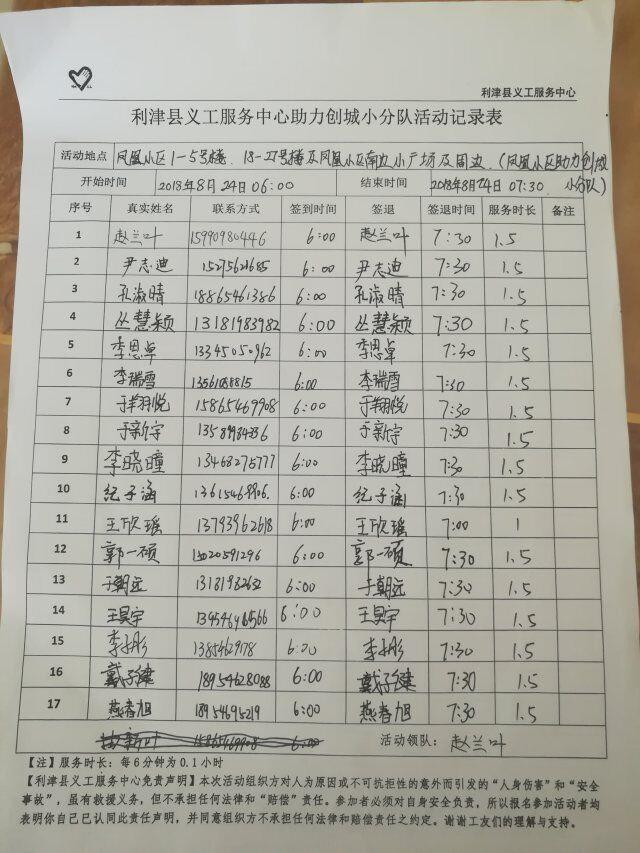 利津县义工服务中心
利津县义工服务中心助力创城小分队活动记录表
活动地点 凤凰小区1-5号楼、18-27号楼及凤凰小区南边小广场及周边.(凤凰小区助力创城小分队)
开始时间 2018年8月24日06:00 结束时间 2018年8月24日07:30
序号 真实姓名 联系方式 签到时间 签退 签退时间 服务时长 备注
1 赵兰叶 15990980446 6:00 赵兰叶 7:30 1.5
2 尹志迪 15275621685 6:00 尹志迪 7:30 1.5
3 孔淑晴 18865461386 6:00 孔淑晴 7:30 1.5
4 丛慧颖 13181983982 6:00 丛慧颖 7:30 1.5
5 李恩卓 13345050962 6:00 李恩卓 7:30 1.5
6 李瑞雪 6:00 李瑞雪 7:30 1.5
7 于翔悦 15865469908 6:00 于翔悦 7:30 1.5
8 于新宇 6:00 于新宇 7:30 1.5
9 李晓曈 13468275777 6:00 李晓曈 7:30 1.5
10 纪子涵 13615469906. 6:00 纪子涵 7:30 1.5
11 王欣瑶 13793962618 6:00 王欣瑶 7:00 1
12 郭一硕 15020591296 6:00 郭一硕 7:30 1.5
13 于朝远 13181982632 6:00 于朝远 7:30 1.5
14 王昊宇 6:00 王昊宇 7:30 1.5
15 李子彤 6:00 李子彤 7:30 1.5
16 戴子健 18954628088 6:00 戴子健 7:30 1.5
17 燕春旭 18954695219 6:00 燕春旭 7:30 1.5
15865469908 6:00 活动领队: 赵兰叶
【注】服务时长:每6分钟为0.1小时
【利津县义工服务中心免责声明】本次活动组织方对人为原因或不可抗拒性的意外而引发的“人身伤害”和“安全
事故”,虽有救援义务,但不承担任何法律和“赔偿”责任。参加者必须对自身安全负责,所以报名参加活动者均
表明你自己已认同此责任声明,并同意组织方不承担任何法律和赔偿责任之约定。谢谢工友们的理解与支持。